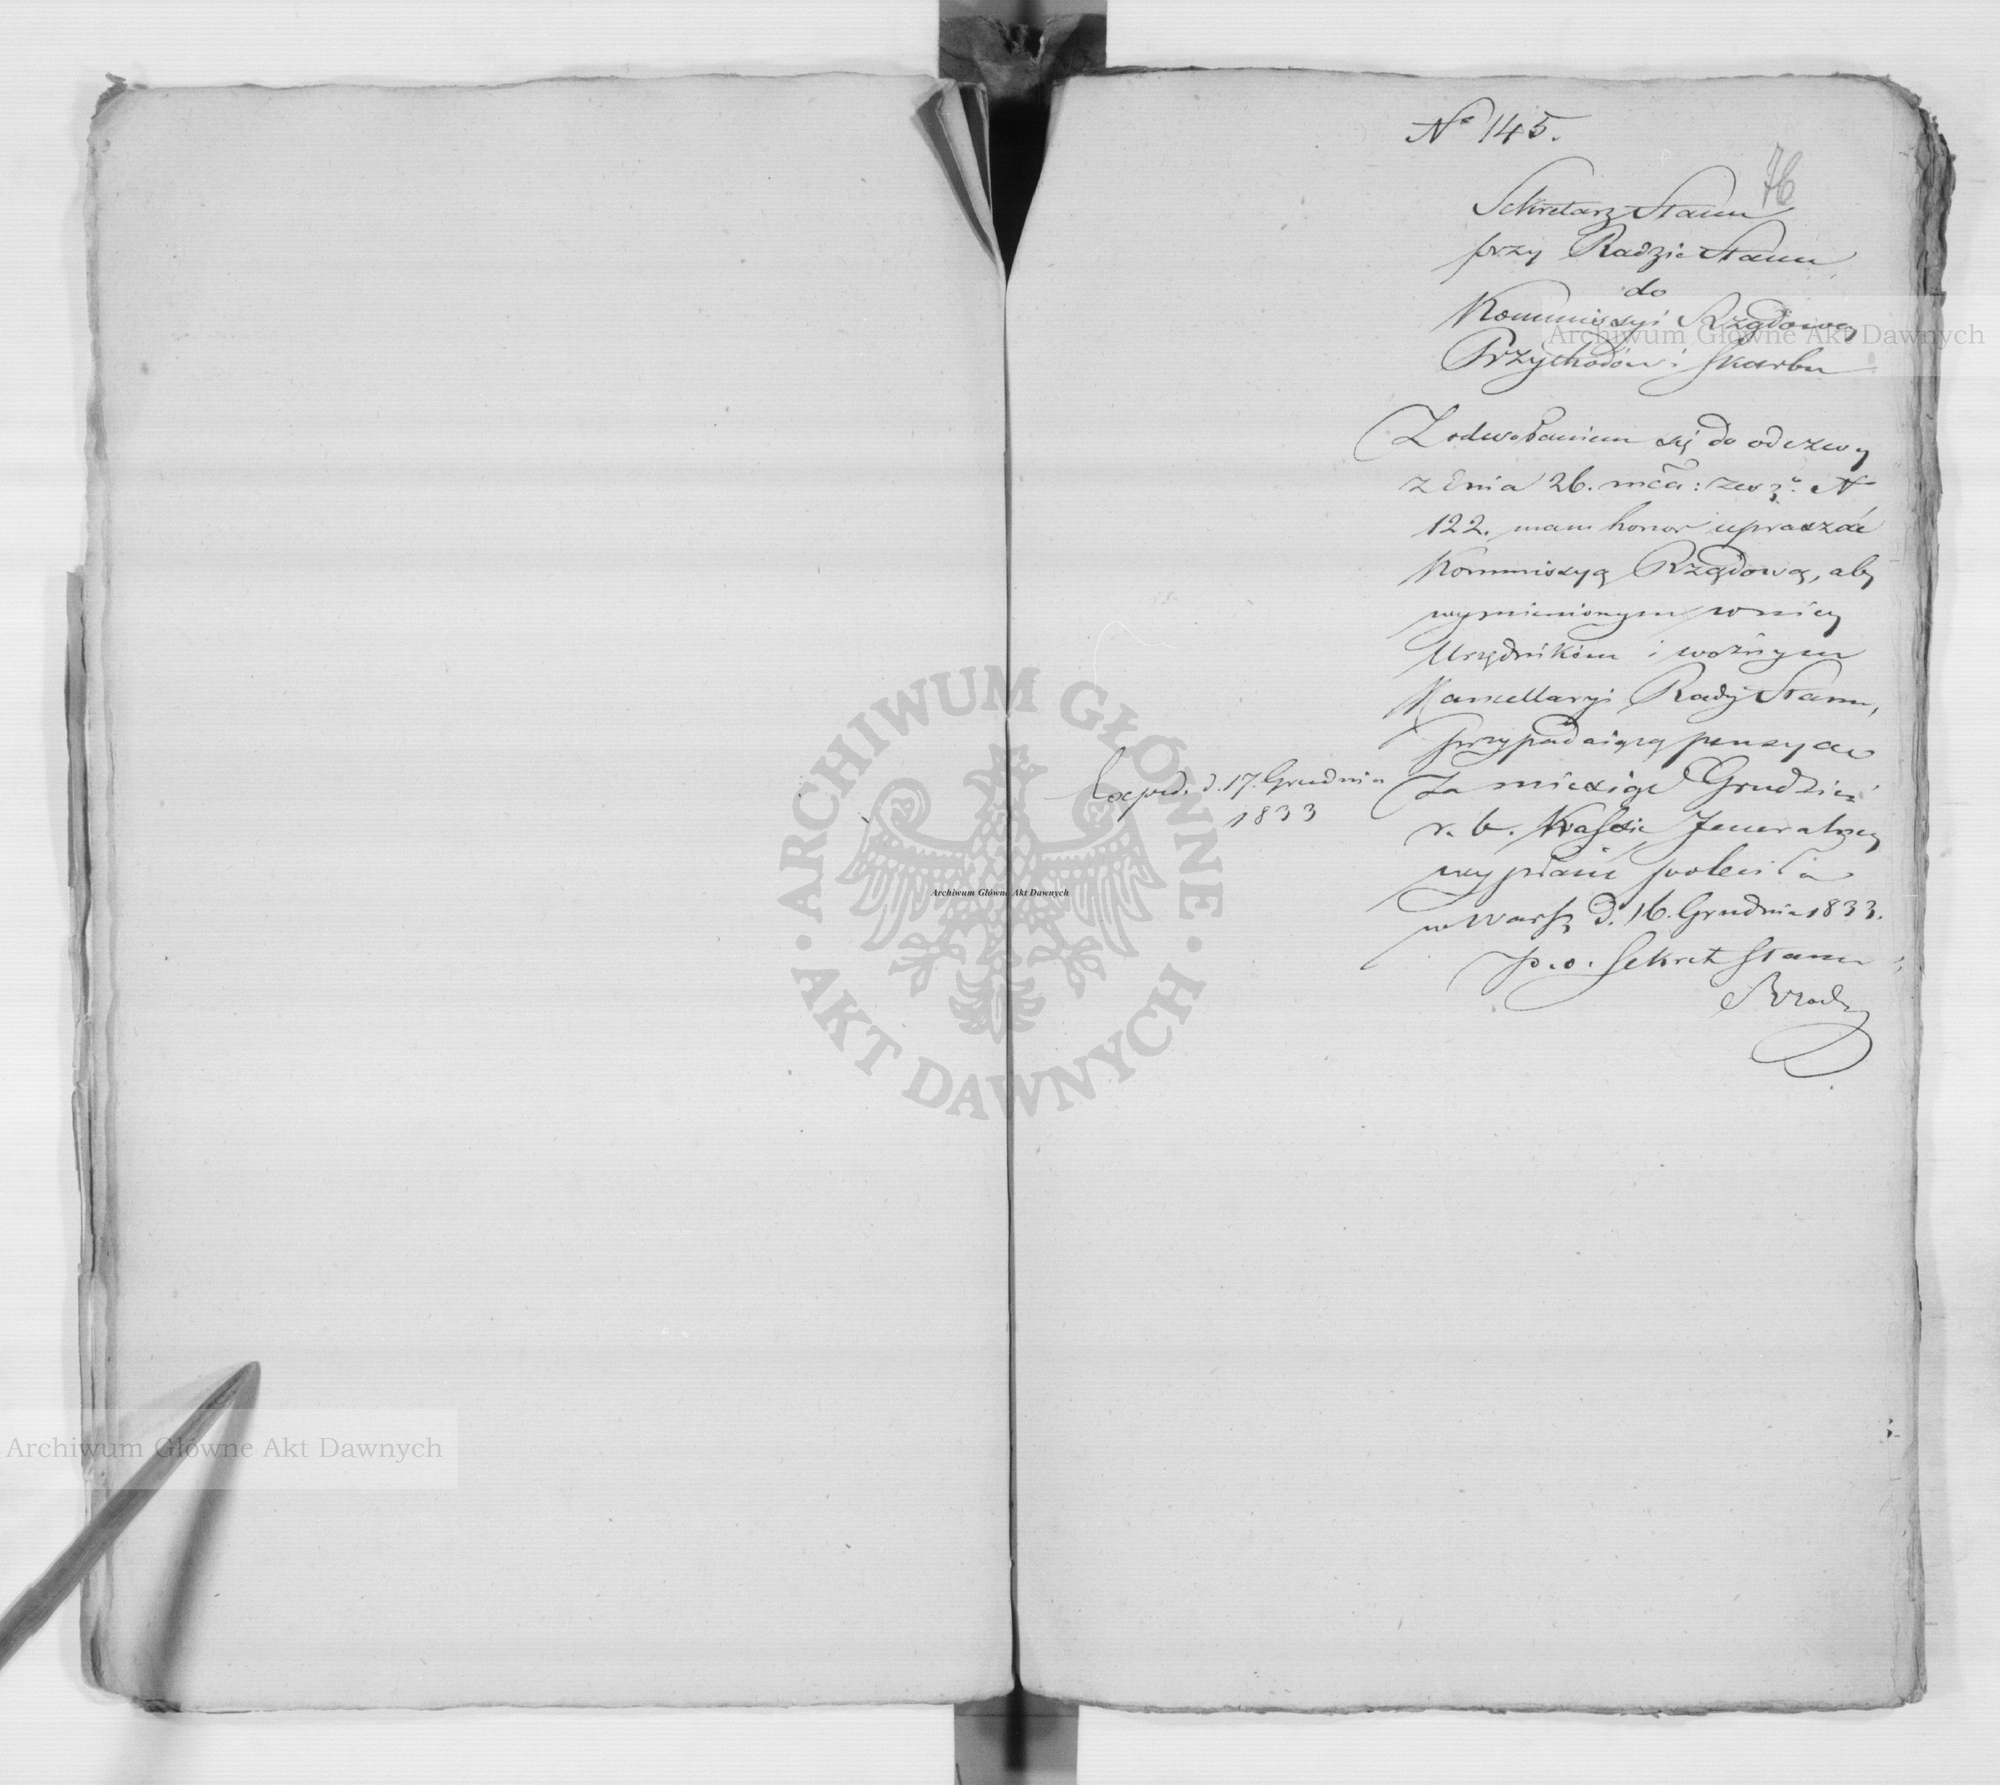 Nº 145.
76
Sekretarz Stanu
przy Radzie Stanu
do
Kommissyi Rządowey
Przychodów i Skarbu
Z odwołaniem się do odezwy
z dnia 26. mca: zeszº. Nº
122. mam honor upraszać
Kommissyą Rządową, aby
wymienionym w niey
Urzędnikom i woźnym
Kancellaryi Rady Stanu,
przypadaiącą pensyą
za miesiąc Grudzień
r. b. Kassie Jeneralney
wypłacić poleciła
w Warsz. d. 16. Grudnia 1833.
p. o. Sekret. Stanu
Exped. d. 17. Grudnia
1833
Archiwum Główne Akt Dawnych
ARCHIWUM GŁÓWNE
AKT DAWNYCH
Archiwum Główne Akt Dawnych
Archiwum Główne Akt Dawnych